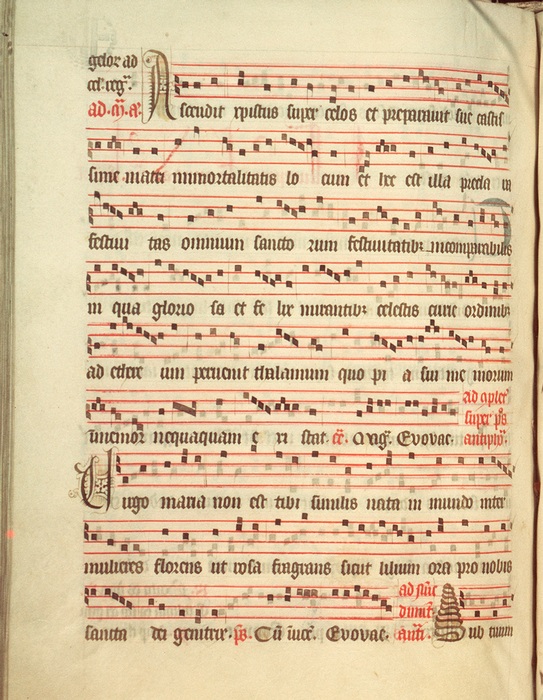 gelor ad
cel. reg.
ad. m. a. Ascendit xpistus super celos et preparauit sue castis
sime matri inmortalitatis lo cum et hec est illa precla ra
festiui tas omnium sancto rum festiuitatibz incomparabilis
in qua glorio sa et fe lix mirantibz celestis curie ordinibz
ad ethere um peruenit thalamum quo pi a sui me morum
inmemor nequaquam e xi stat. Mag. Evovae. ad cplet
super ps
antiph.
Uirgo maria non est tibi similis nata in mundo inter
mulieres florens ut rosa fragrans sicut lilium ora pro nobis
sancta dei genitrix. ps Cu inuoc. Evovae. ad nunc
dimit.
ant. Sub tuum